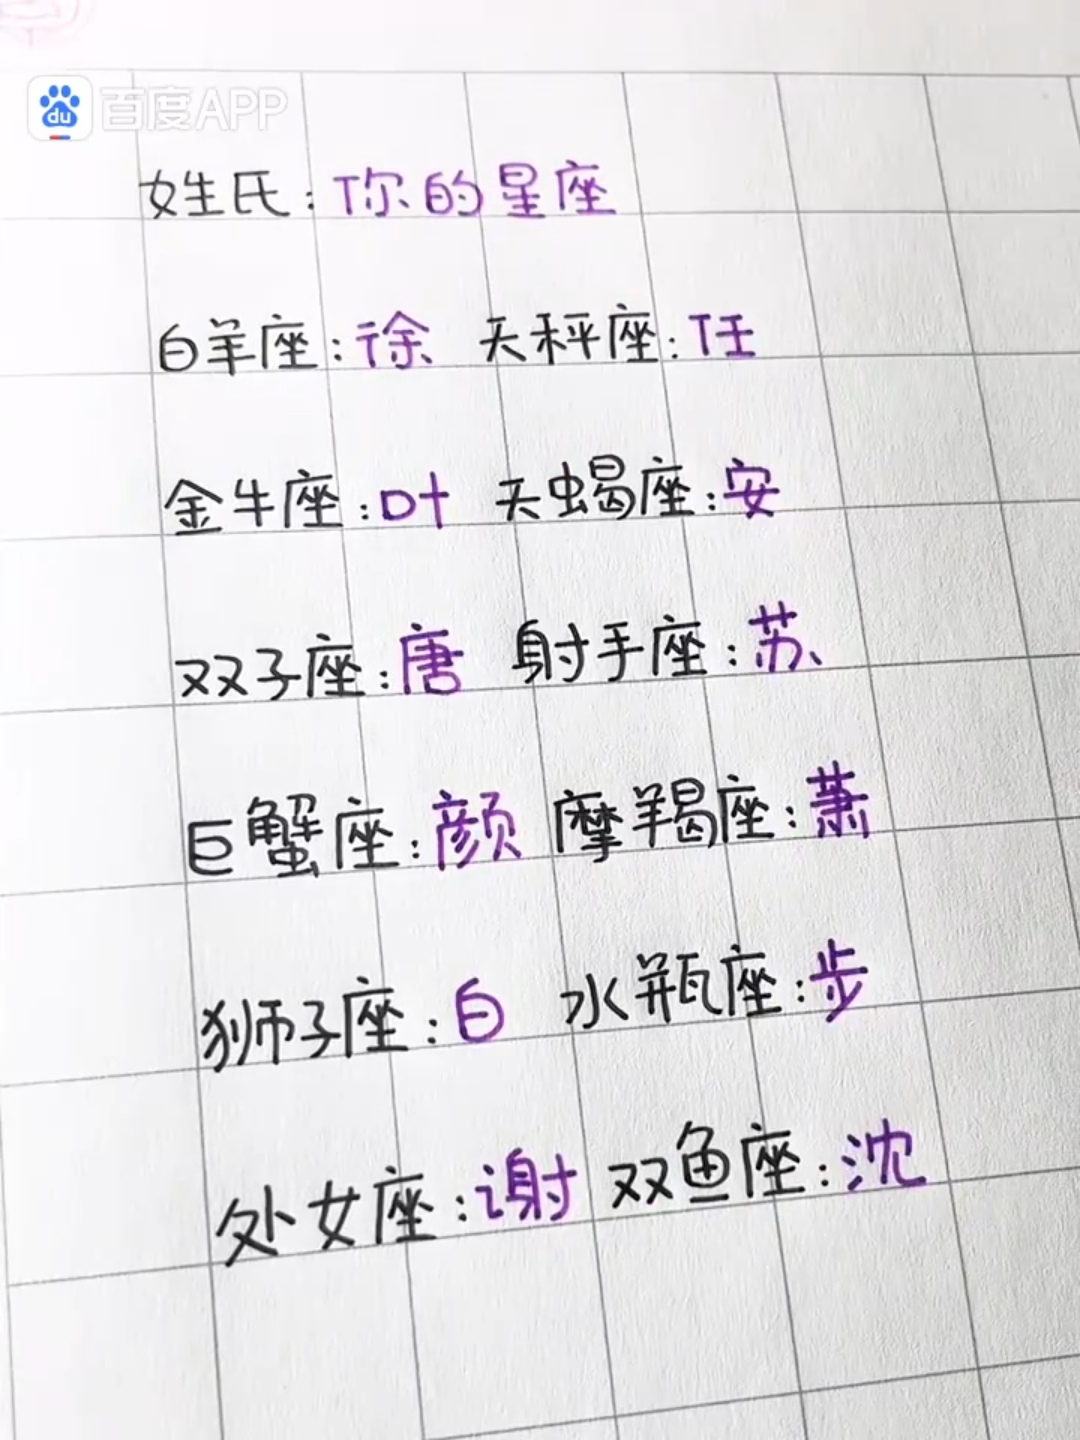 du 百度APP
姓氏：你的星座
白羊座：徐 天秤座：任
金牛座：叶 天蝎座：安
双子座：唐 射手座：苏
巨蟹座：颜 摩羯座：萧
狮子座：白 水瓶座：步
处女座：谢 双鱼座：沈